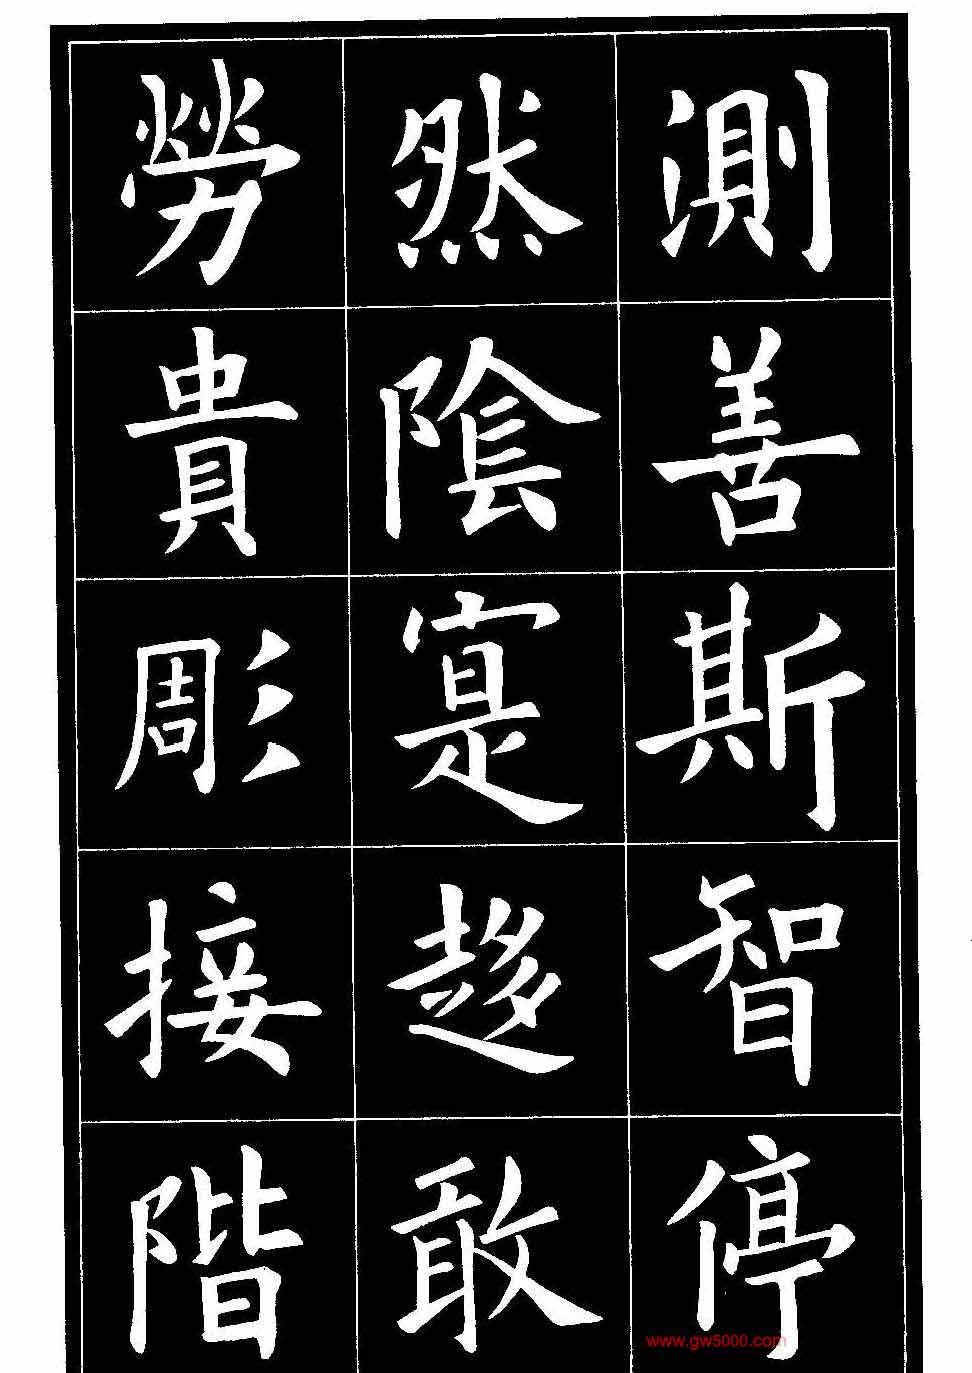 測善斯智停
然陰寔趍敢
勞貴彫接階
www.gw5000.com